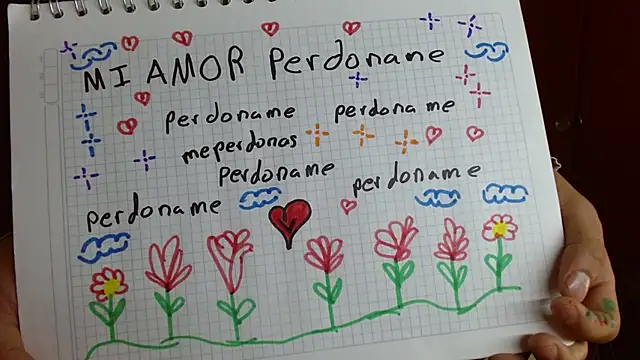 MI AMOR Perdoname
perdoname perdoname
meperdonas
Perdoname perdoname
perdoname